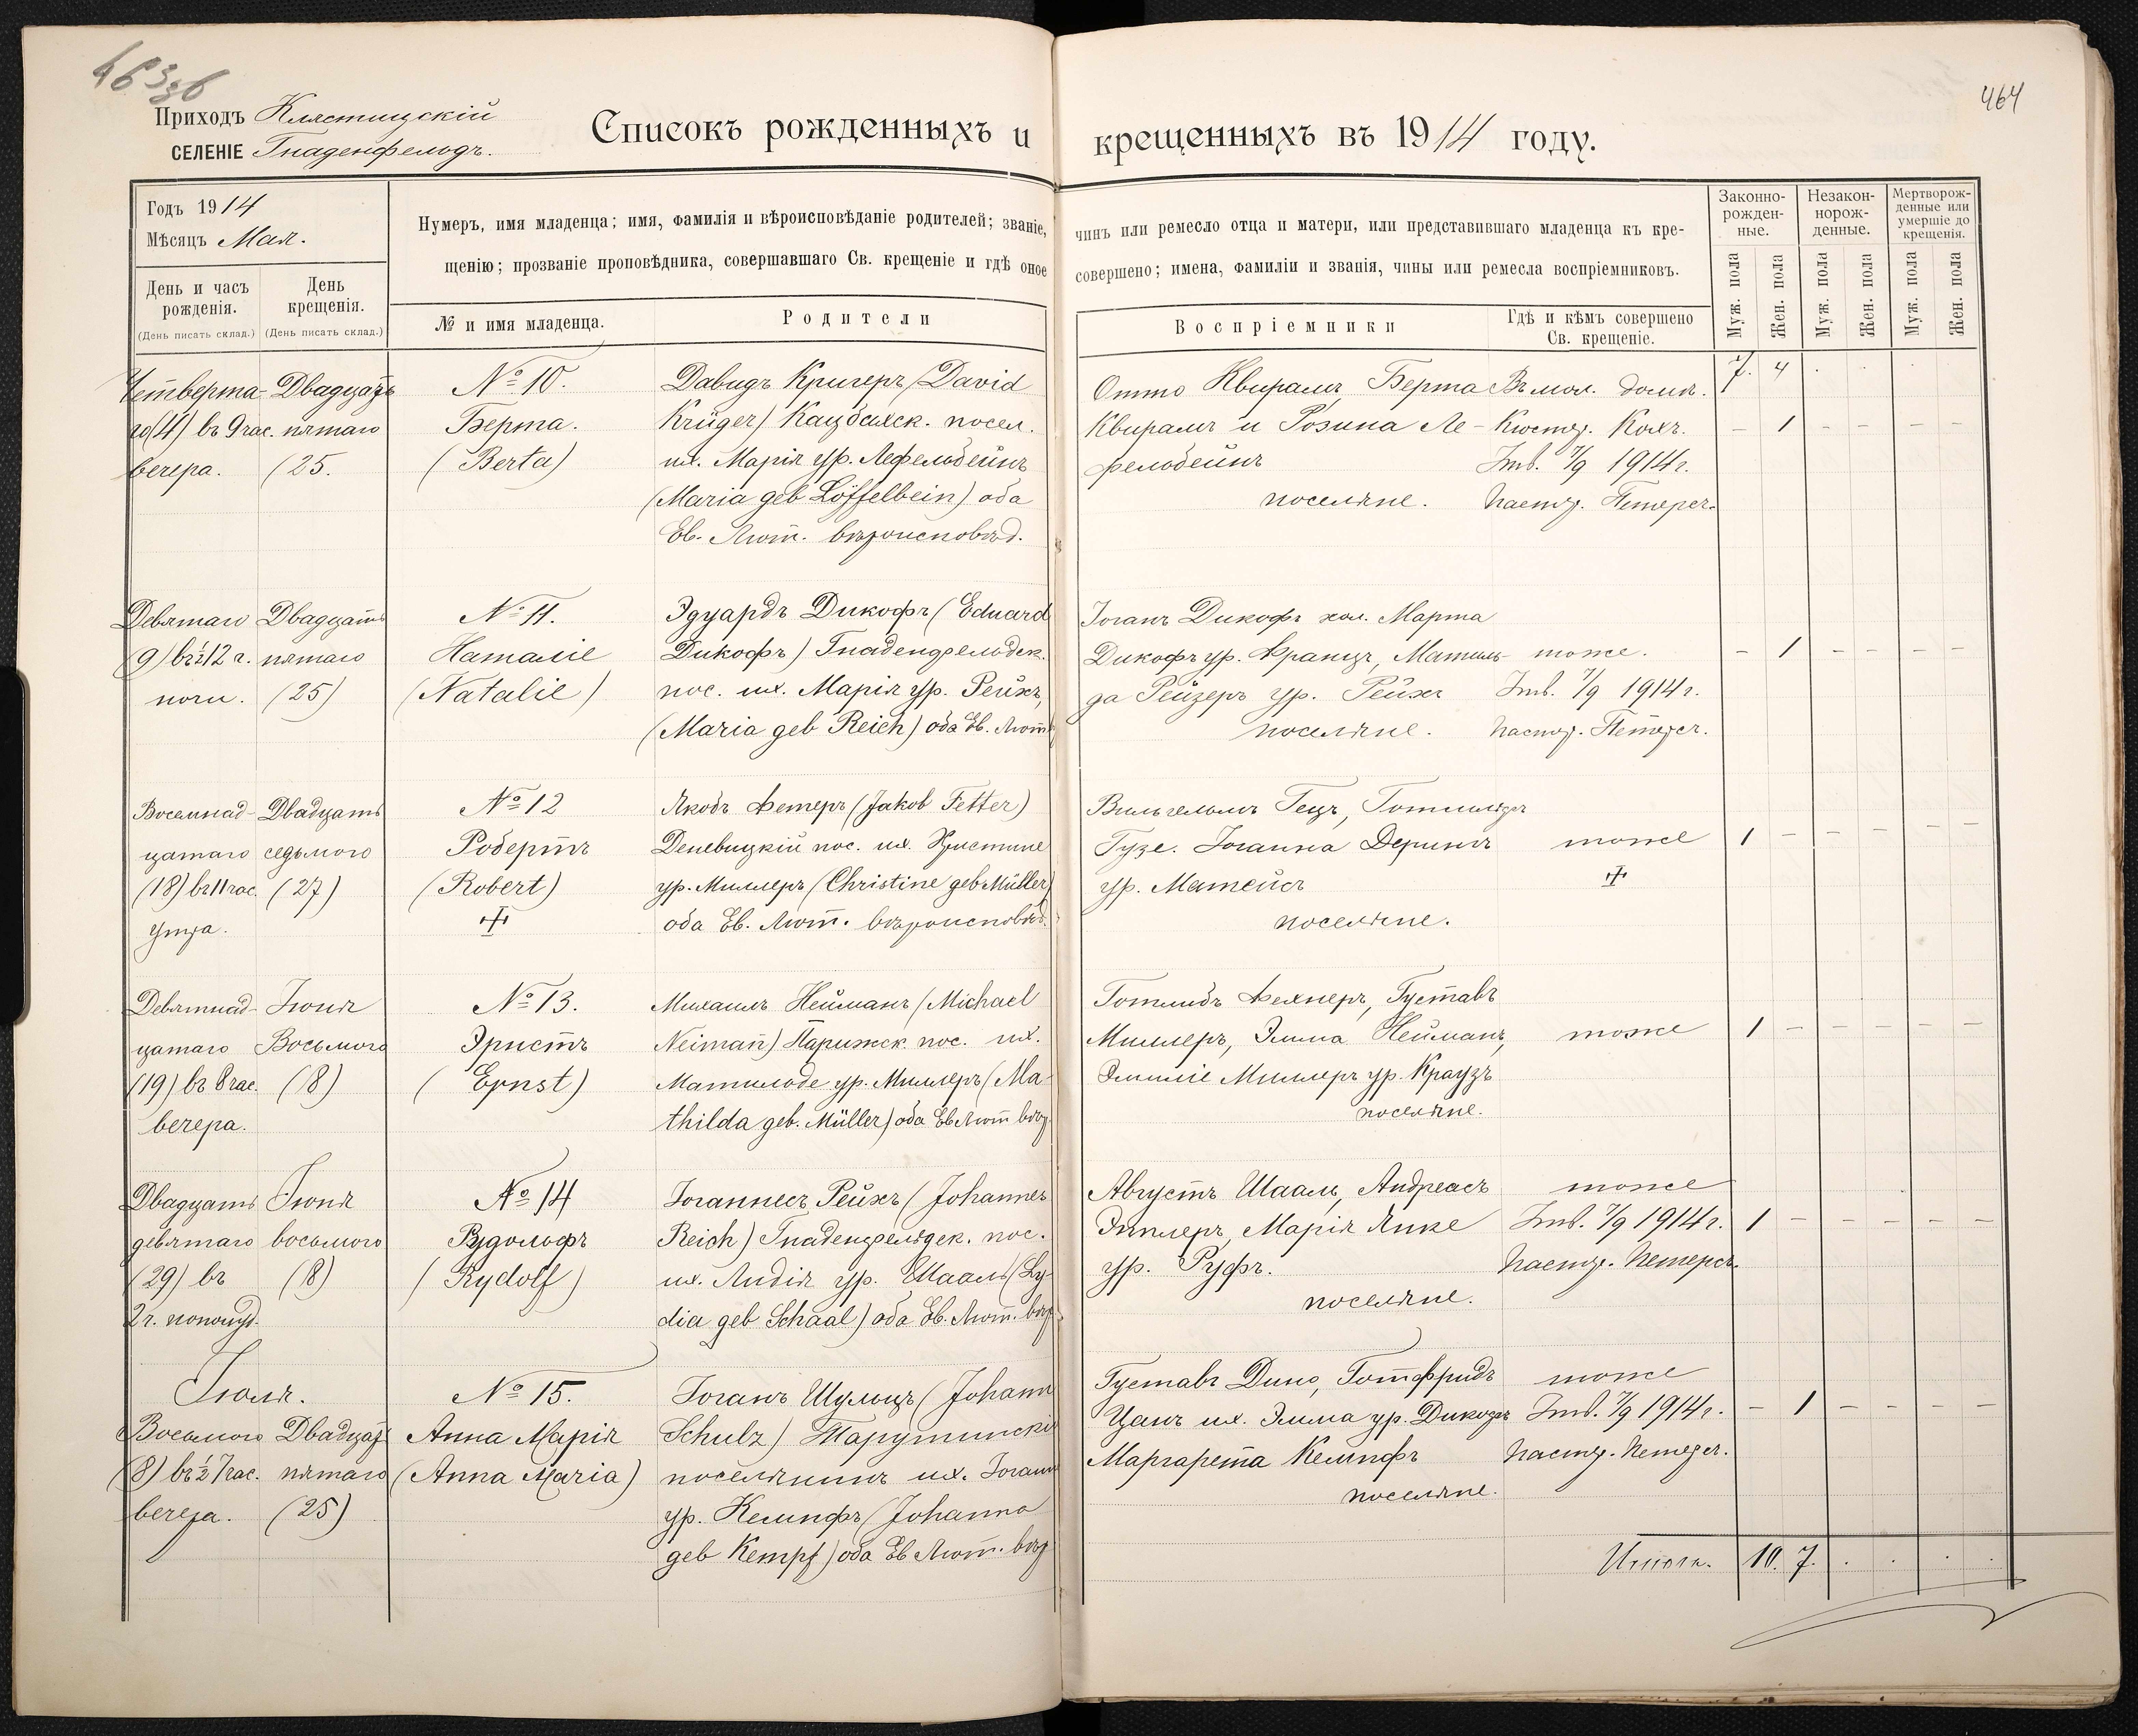 463 зв
464
Приходъ Клястицскій
СЕЛЕНІЕ Гнаденфельдъ.
Списокъ рожденныхъ и крещенныхъ въ 1914 году.
Годъ 1914
Мѣсяцъ Мая.
День и часъ рожденія.
(День писать склад.)
День крещенія.
(День писать склад.)
Нумеръ, имя младенца; имя, фамилія и вѣроисповѣданіе родителей; званіе, чинъ или ремесло отца и матери, или представившаго младенца къ кре-
щенію; прозваніе проповѣдника, совершавшаго Св. крещеніе и гдѣ оное совершено; имена, фамиліи и званія, чины или ремесла воспріемниковъ.
№ и имя младенца.
Родители
Воспріемники
Гдѣ и кѣмъ совершено
Св. крещеніе.
Законно-
рожден-
ные.
Незакон-
норож-
денные.
Мертворож-
денные или
умершіе до
крещенія.
Муж. пола
Жен. пола
Муж. пола
Жен. пола
Муж. пола
Жен. пола
7. 4
Четверта-
го (4) въ 9 час.
вечера.
Двадцать
пятаго
(25.
№ 10.
Берта.
(Berta)
Давидъ Кригеръ (David
Krüger) Кацбахск. посел.
их. Марія ур. Лефельбейнъ
(Maria geb Löffelbein) оба
Ев. Лют. вѣроисповѣд.
Отто Квирамъ, Берта
Квирамъ и Розина Ле-
фельбейнъ
поселяне.
Въ мол. домѣ.
Кюстер. Кохъ.
Imb. 7/9 1914 г.
Пастор. Петерсъ.
– 1 – – – –
Девятаго
(9) въ ½12 ч.
ночи.
Двадцать
пятаго
(25)
№ 11.
Наталіе
(Natalie)
Эдуардъ Дикофъ (Eduard
Дикофъ) Гнаденфельдск.
пос. их. Марія ур. Рейхъ,
(Maria geb Reich) оба Ев. Лют.
Іоганъ Дикофъ хол. Марта
Дикофъ ур. Францъ, Матиль-
да Рейзеръ ур. Рейхъ
поселяне.
тоже.
Imb. 7/9 1914 г.
Пастор. Петерсъ.
– 1 – – – –
Восемнад-
цатаго
(18) въ 11 час.
утра.
Двадцать
седьмого
(27)
№ 12
Робертъ
(Robert)
Якобъ Фетеръ (Jakob Fetter)
Деневицкій пос. их. Христине
ур. Миллеръ (Christine geb Müller)
оба Ев. Лют. вѣроисповѣд.
Вильгельмъ Гецъ,
Гузе. Іоганна Дерингъ
ур. Матейсъ
поселяне.
тоже
1 – – – – –
Девятнад-
цатаго
(19) въ 8 час.
вечера.
Іюня
Восьмого
(8)
№ 13.
Эрнстъ
(Ernst)
Михаилъ Нейманъ (Michael
Neiman̄) Парижск. пос. их.
Матильде ур. Миллеръ (Ma-
thilda geb. Müller) оба Ев Лют вѣр
Готлибъ Фехнеръ, Густавъ
Миллеръ, Эмма Нейманъ,
Эмиліе Миллеръ ур. Краузъ
поселяне.
тоже
1 – – – – –
Двадцать
девятаго
(29) въ
2 ч. пополуд.
Іюня
восьмого
(8)
№ 14
Рудольфъ
(Rydolf)
Іоганнесъ Рейхъ (Johannes
Reich) Гнаденфельдск. пос.
их. Лидія ур. Шааль (Ly-
dia geb Schaal) оба Ев. Лют. вѣр
Августъ Шааль, Андреасъ
Эпплеръ, Марія Янке
ур. Руфъ.
поселяне.
тоже
Imb. 7/9 1914 г.
Пастор. Петерсъ.
1 – – – – –
Іюля.
Восьмого
(8) въ ½ 7 час.
вечера.
Двадцат
пятаго
(25)
№ 15.
Анна Марія
(Anna Maria)
Іоганъ Шульцъ (Johann
Schulz) Тарутинскій
поселянинъ их. Іоганн
ур. Кемпфъ (Johanna
geb Kempf) оба Ев Лют. вѣр
Густавъ Динс, Готфридъ
Цанъ их. Эмма ур. Дикофъ
Маргарета Кемпфъ
поселяне.
тоже
Imb. 7/9 1914 г.
Пастор. Петерсъ.
– 1 – – – –
Итого. 10. 7.